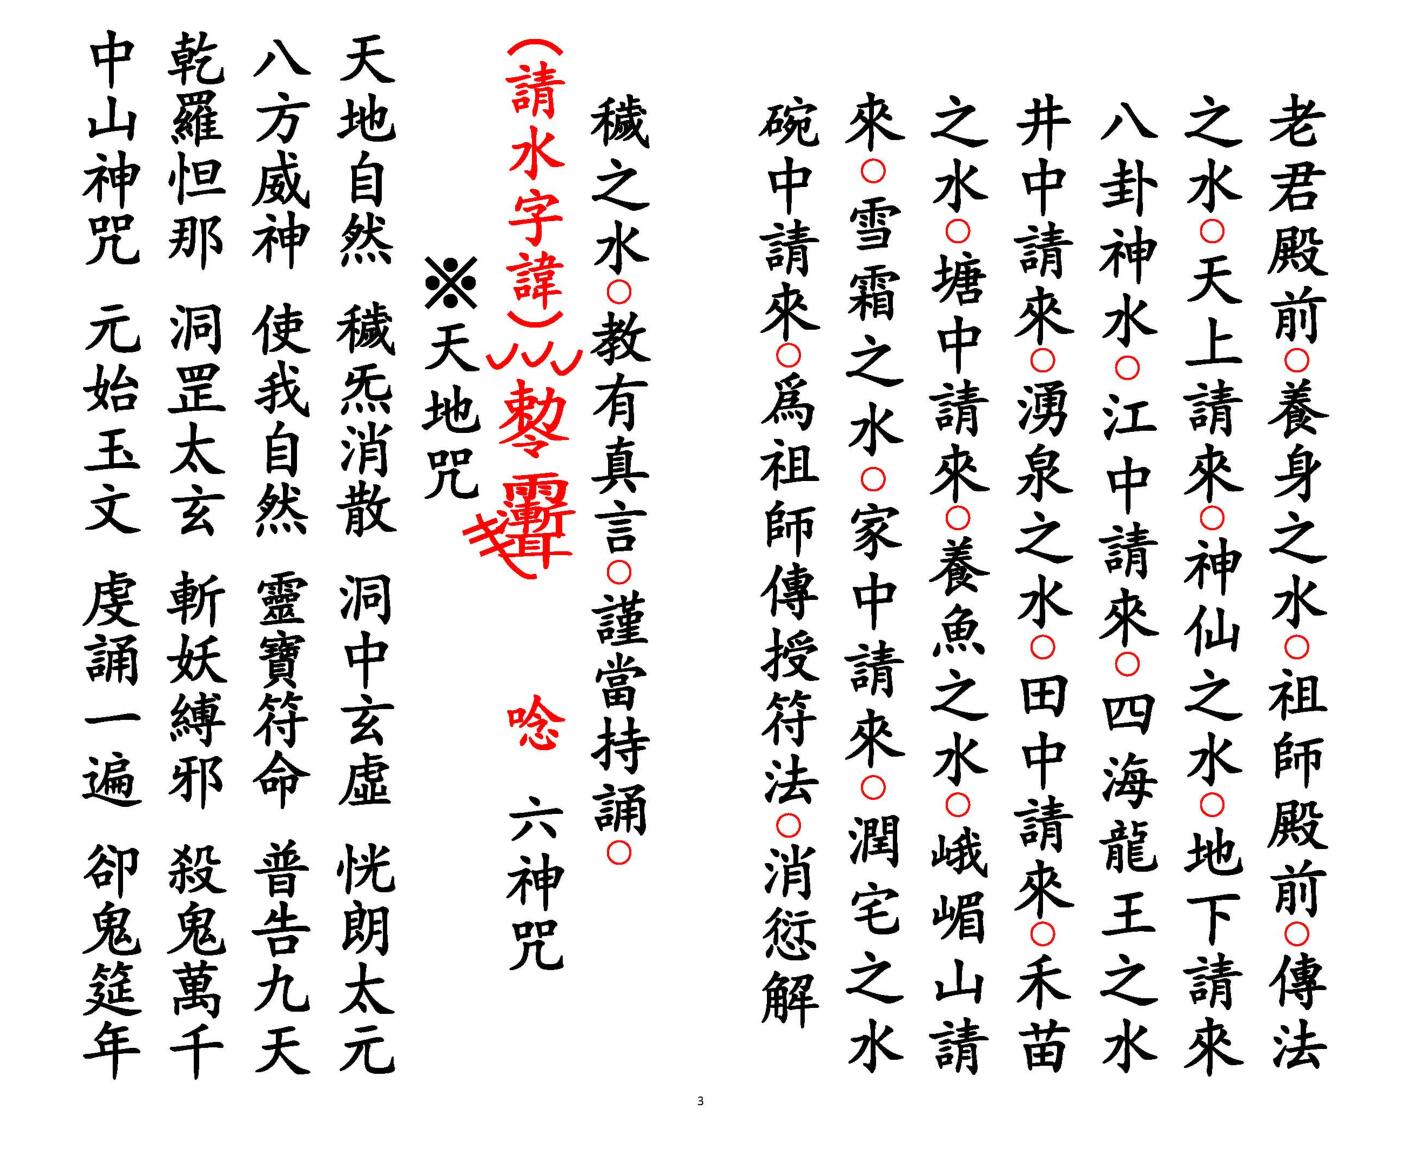 老君殿前○養身之水○祖師殿前○傳法
之水○天上請來○神仙之水○地下請來
八卦神水○江中請來○四海龍王之水
井中請來○湧泉之水○田中請來○禾苗
之水○塘中請來○養魚之水○峨嵋山請
來○雪霜之水○家中請來○潤宅之水
碗中請來○爲祖師傳授符法○消愆解
穢之水○教有真言○謹當持誦○
(請水字諱) 唸 六神咒
※天地咒
天地自然 穢炁消散 洞中玄虛 恍朗太元
八方威神 使我自然 靈寶符命 普告九天
乾羅怛那 洞罡太玄 斬妖縛邪 殺鬼萬千
中山神咒 元始玉文 虔誦一遍 卻鬼筵年
3